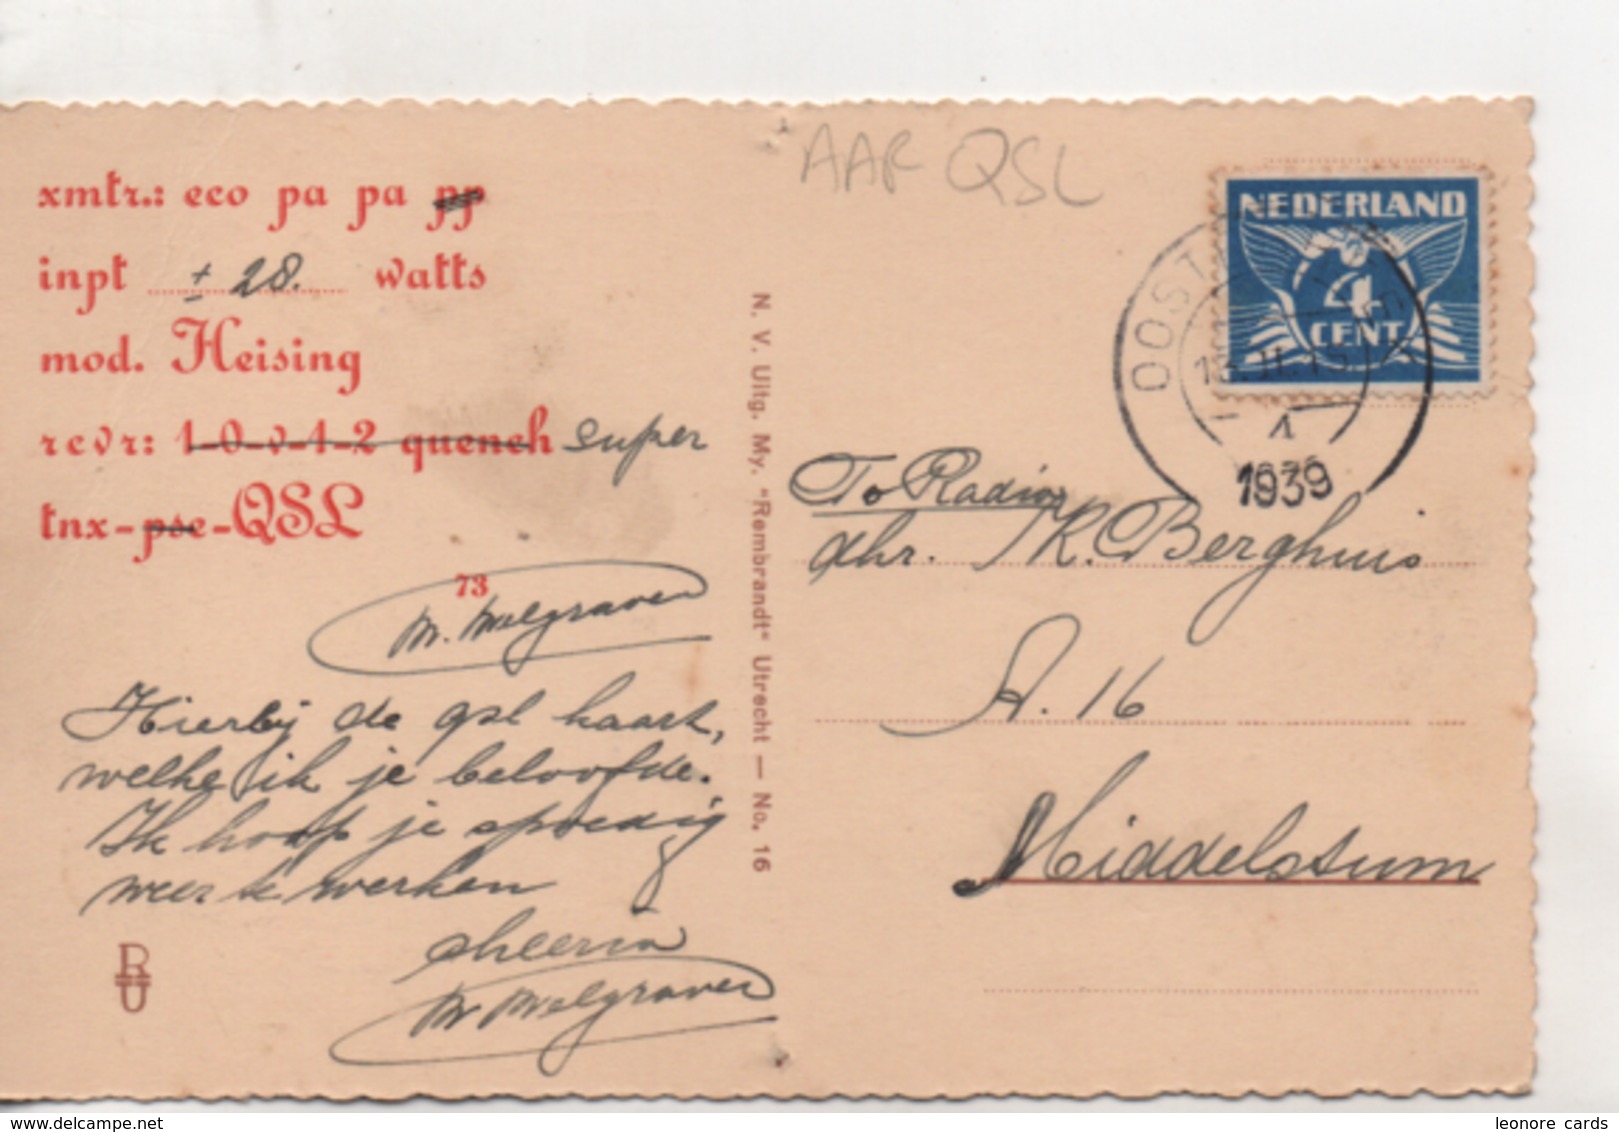 AAR QSL
xmtr.: eco pa pa pp
inpt ± 28. watts
mod. Heising
rcvr: 1-0-v-1-2 quench super
tnx-pse-QSL
73
Hierbij de qsl kaart,
welke ik je beloofde.
Ik hoop je spoedig
weer te werken
cheerio
RU
N. V. Uitg. My. "Rembrandt" Utrecht — No. 16
NEDERLAND
4
CENT
1939
To Radio
dhr. K. Berghuis
A. 16
Middelstum
leonore cards